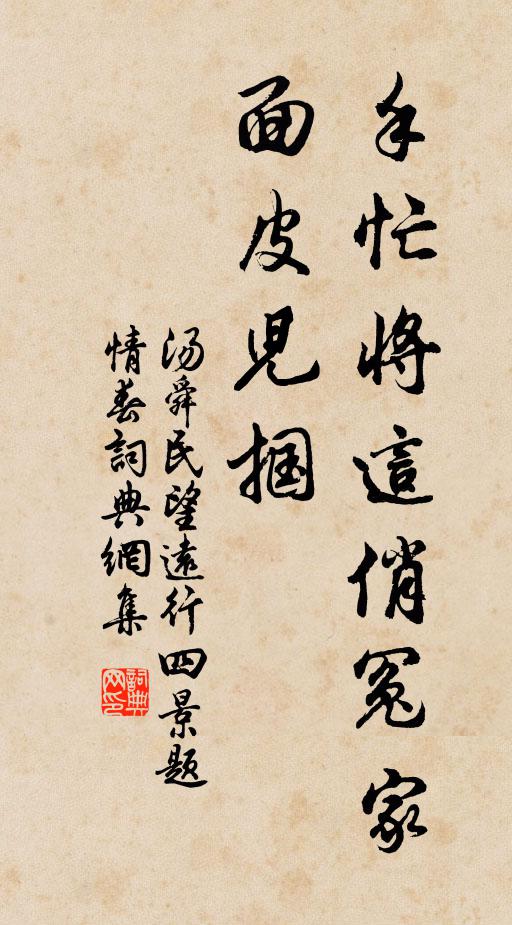 手忙將這俏冤家
面皮兒掴
汤舜民望遠行四景题
情春詞典網集
詞典
网印